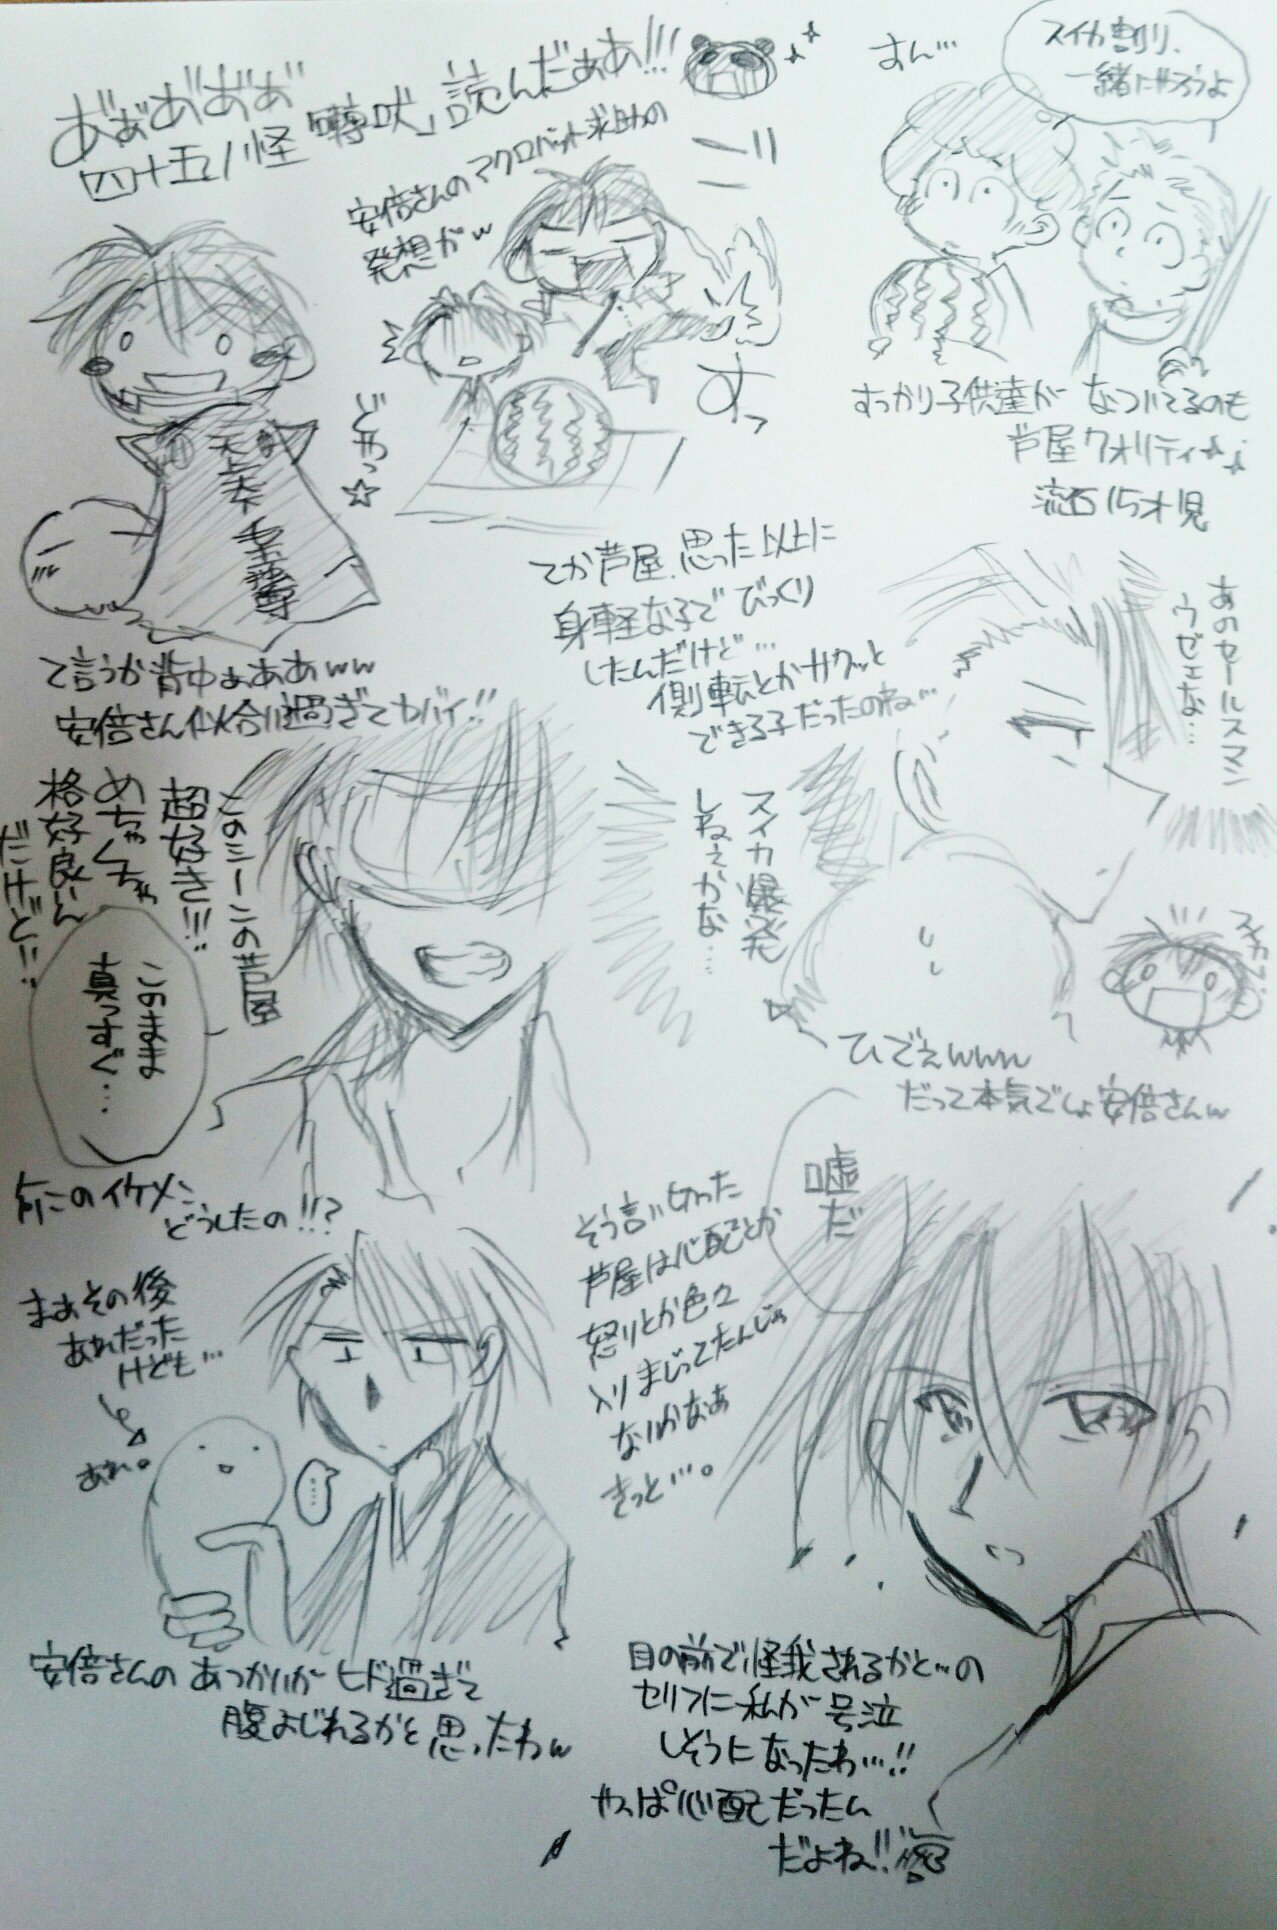 あ゛ぁあ゛あ゛ぁ゛
四十五ノ怪「囀吠」読んだぁぁ!!!
安倍さんのマクロバット求助の
発想がw
すっ
どやっ☆
天上天下
て言うか背中ぁぁああww
安倍さん似合い過ぎてヤバイ!!
すん…
スイカ割り、
一緒にやろうよ
すっかり子供達がなついてるのも
芦屋クオリティ
流石15才児
てか芦屋、思った以上に
身軽な子でびっくり
したんだけど…
側転とかサクッと
できる子だったのね…
あのセールスマン
ウゼェな…
スイカ爆発
しねぇかな…
ひでえwww
だって本気でしょ安倍さんw
このシーンの芦屋
超好き!!!
めちゃくちゃ
格好良いん
だけど!!
このまま
真っすぐ…
何このイケメン
どうしたの!!?
まぁその後
あれだった
けども…
あれ。
……
安倍さんのあつかいがヒド過ぎて
腹よじれるかと思ったわw
嘘だ
そう言い切った
芦屋は心配とか
怒りとか色々
入りまじってたんじゃ
ないかなぁ
きっと…。
目の前で怪我されるかと…の
セリフに私が号泣
しそうになったわ…!!
やっぱ心配だったん
だよね!!